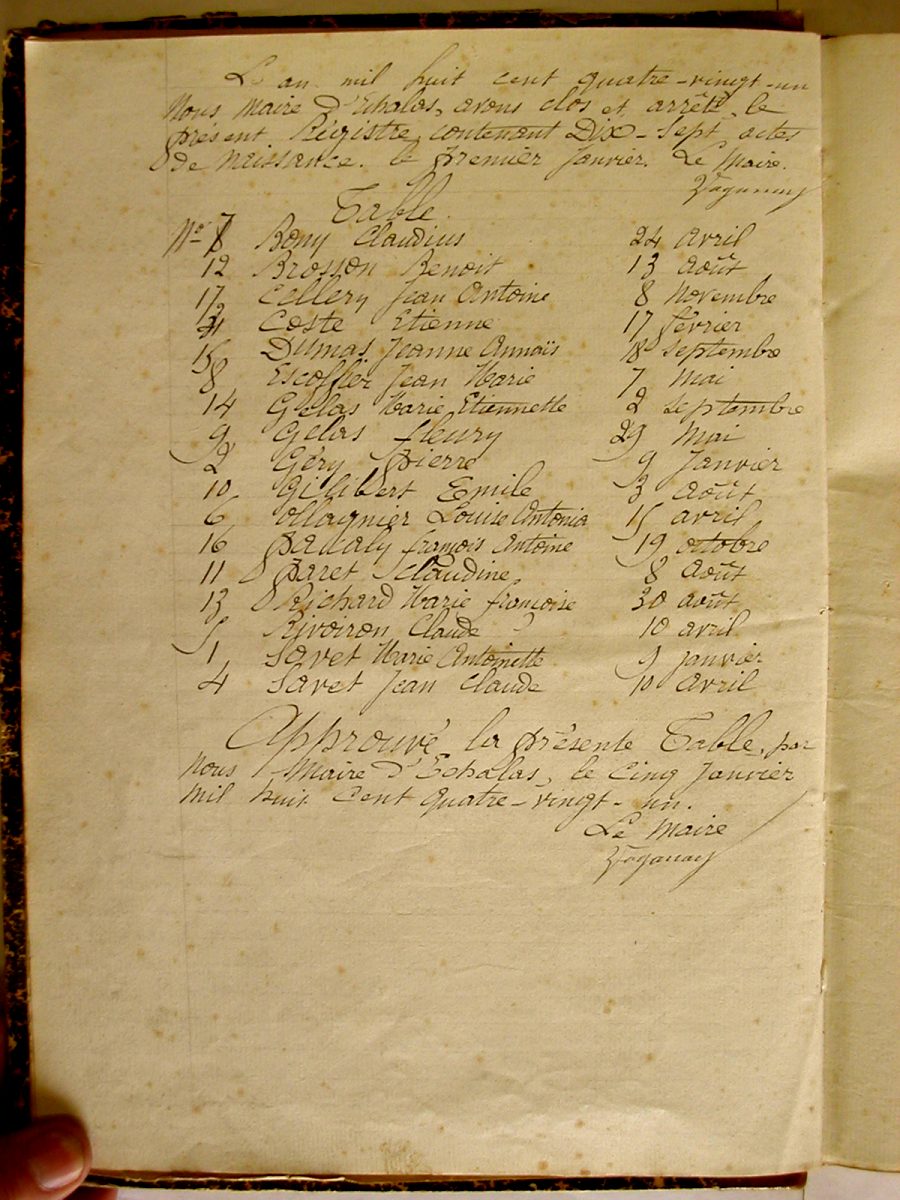 Le an mil huit cent quatre-vingt-un
Nous, Maire d'Echalas, avons clos et arrêté le
présent Régistre contenant Dix-Sept actes
de Naissance. le Premier Janvier. Le Maire.
Vaganay
Table
No 7 Bony Claudius 24 avril
12 Brosson Benoit 13 Août
17 Cellery Jean Antoine 8 Novembre
3 Coste Etienne 17 février
15 Dumas Jeanne Annaïs 18 septembre
8 Escoffier Jean Marie 7 Mai
14 Gelas Marie Etiennette 2 septembre
9 Gelas fleury 29 Mai
2 Géry Pierre 9 Janvier
10 Gilibert Emile 3 Août
6 Ollagnier Louise Antonia 15 avril
16 françois Antoine 19 octobre
11 Paret Claudine 8 Août
13 Richard Marie françoise 30 août
5 Rivoiron Claude 10 avril
1 Savet Marie Antoinette 9 janvier
4 Savet Jean Claude 10 Avril
Approuvé la présente Table, par
Nous Maire d'Echalas, le Cinq Janvier
Mil huit Cent quatre-vingt-un.
Le Maire
Vaganay